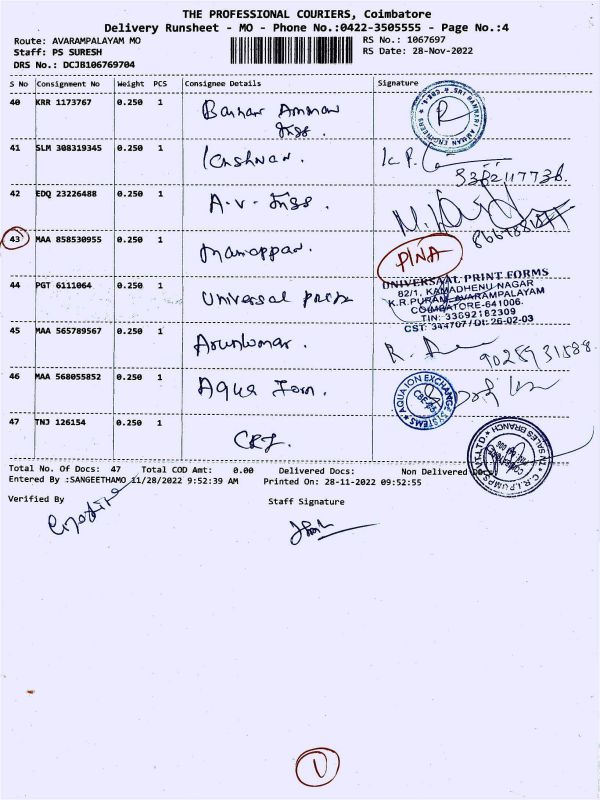 THE PROFESSIONAL COURIERS, Coimbatore
Delivery Runsheet - MO - Phone No.:0422-3505555 - Page No.:4
Route: AVARAMPALAYAM MO
RS No.: 1067697
Staff: PS SURESH
RS Date: 28-Nov-2022
DRS No.: DCJB106769704
S No Consignment No Weight PCS Consignee Details Signature
40 KRR 1173767 0.250 1 Bannari Amman
SRI BANNARI AMMAN ENGINEERS
41 SLM 308319345 0.250 1
42 EDQ 23226488 0.250 1 A.V.
43 MAA 858530955 0.250 1
PINA
44 PGT 6111064 0.250 1 Universal
UNIVERSAAL PRINT FORMS
82/1, KAMADHENU NAGAR
K.R.PURAM, AVARAMPALAYAM
COIMBATORE-641006.
TIN: 33692182309
CST: 344707/Dt: 26-02-03
45 MAA 565789567 0.250 1 Arunkumar. 9025931588
46 MAA 568055852 0.250 1 Aqua Ion.
AQUA ION EXCHANGE SYSTEMS
CBE-6
47 TNJ 126154 0.250 1 CRI.
C.R.I. PUMPS PVT. LTD. TN SALES BRANCH
Total No. Of Docs: 47 Total COD Amt: 0.00 Delivered Docs: Non Delivered Docs:
Entered By :SANGEETHAMO 11/28/2022 9:52:39 AM Printed On: 28-11-2022 09:52:55
Verified By Staff Signature